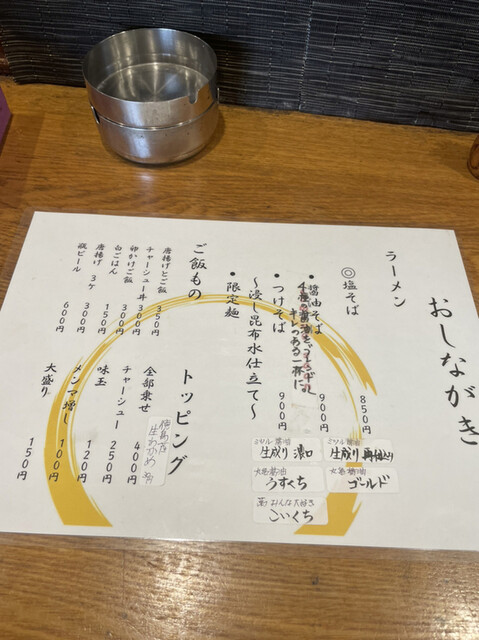 おしながき
ラーメン
◎塩そば 850円
・醤油そば 900円
4種の醤油をブレンドした
キレのある一杯に
ミツル醤油
生成り 再仕込み
ミツル醤油
生成り 濃口
醤油
ゴールド
醤油
うすくち
おんな大好き
こいくち
・つけそば 900円
〜浸し昆布水仕立て〜
・限定麺
ご飯もの
唐揚げとご飯 350円
チャーシュー丼 300円
卵かけご飯 300円
白ごはん 150円
唐揚げ 3ケ 300円
瓶ビール 600円
トッピング
徳島産
生わかめ
全部乗せ 400円
チャーシュー 250円
味玉 120円
メンマ増し 100円
大盛り 150円